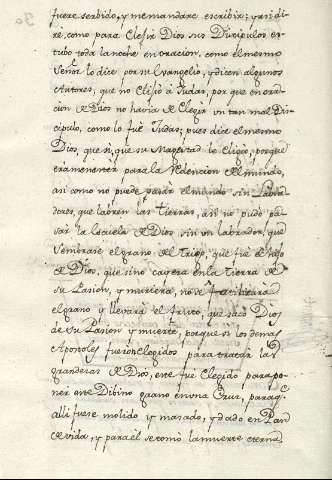 fuere serbido, y me mandare escribir; y asi di
re, como para Elexir Dios sus Dicipulos es
tubo toda la noche en oracion, como el mesmo
Señor lo dice por su Evangelio, y dicen algunos
Autores, que no Elijio à Judas, por que en ora
cion de Dios no havia de Elegir un tan mal Dis
cipulo, como lo fuè Judas; pues dice el mesmo
Dios que si, que su Magestad lo eligiò, porque
era menester para la redencion del mundo,
asi como no puede pasar el mundo sin Labra
dores, que labren las tierras, asi no pudo pa
sar la Escuela de Dios sin un labrador, que
sembrase el grano del trigo, que fuè el hijo
de Dios, que si no cayera en la tierra de
su Pasion, y muriera, no se fertilizara
el grano, y llevara el fruto, que sacò Dios
de su Pasion y muerte, porque si los demas
Apostoles fueron Elegidos para tratar las
grandezas de Dios, este fuè Elegido para po
ner este Dibino grano en una Cruz, para q.e
alli fuese molido y masado, y dado en Pan
de vida, y para èl se tomò la muerte eterna